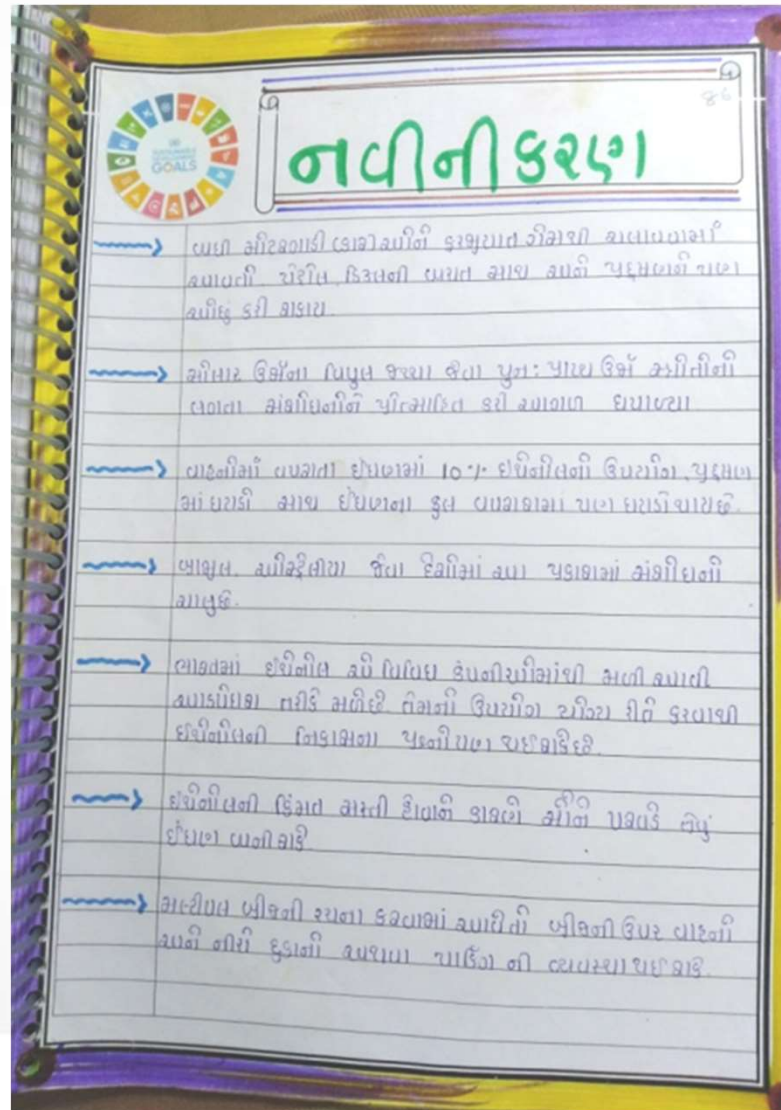 86
SUSTAINABLE
DEVELOPMENT
GOALS
નવીનીકરણ
બધી મોટરગાડી (કાર) ઓને ફરજીયાત ગેસથી ચલાવવામાં
આવતી પેટ્રોલ, ડિઝલની બચત સાથ અને પ્રદૂષણને પણ
ઓછું કરી શકાય
સોલાર ઉર્જાના વિપુલ જથ્થા જેવા પુન: પ્રાપ્ય ઉર્જા સ્ત્રોતોની
લગતા સંશોધનોને પ્રોત્સાહિત કરી આગળ ધપાવ્યા
વાહનોમાં વપરાતા ઈંધણમાં 10% ઈથેનોલનો ઉપયોગ, પ્રદૂષણ
માં ઘટાડો સાથ ઈંધણના કુલ વપરાશમાં પણ ઘટાડો થાય છે.
બ્રાઝીલ, ઓસ્ટ્રેલીયા જેવા દેશોમાં આ પ્રકારમાં સંશોધનો
ચાલુ છે.
ભારતમાં ઈથેનોલ એ વિવિધ કંપનીઓમાંથી મળી આવતી
આડપેદાશ તરીકે મળે છે. તેમનો ઉપયોગ યોગ્ય રીતે કરવાથી
ઈથેનોલની નિકાસના પ્રશ્નો પણ થઈ શકે છે.
ઈથેનોલની કિંમત સસ્તી હોવાને કારણે સૌને પરવડે તેવું
ઈંધણ બની શકે.
મલ્ટીપલ બ્રીજની રચના કરવામાં આવે તો બ્રીજની ઉપર વાહનો
અને નીચે દુકાનો અથવા પાર્કિંગ ની વ્યવસ્થા થઈ શકે.